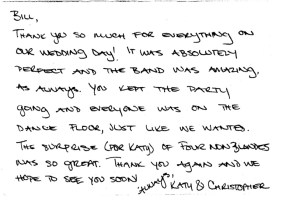 BILL,
THANK YOU SO MUCH FOR EVERYTHING ON
OUR WEDDING DAY! IT WAS ABSOLUTELY
PERFECT AND THE BAND WAS AMAZING,
AS ALWAYS. YOU KEPT THE PARTY
GOING AND EVERYONE WAS ON THE
DANCE FLOOR, JUST LIKE WE WANTED.
THE SURPRISE (FOR KATY) OF FOUR NON BLONDES
WAS SO GREAT. THANK YOU AGAIN AND WE
HOPE TO SEE YOU SOON!
ALWAYS, KATY & CHRISTOPHER